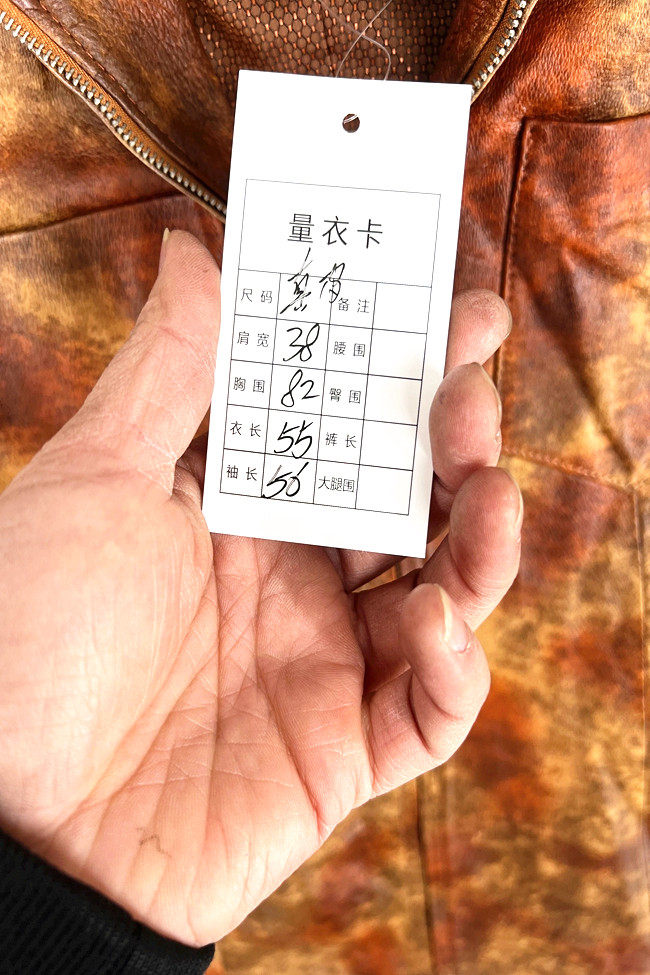 量衣卡
尺码 备注
肩宽 38 腰围
胸围 82 臀围
衣长 55 裤长
袖长 56 大腿围